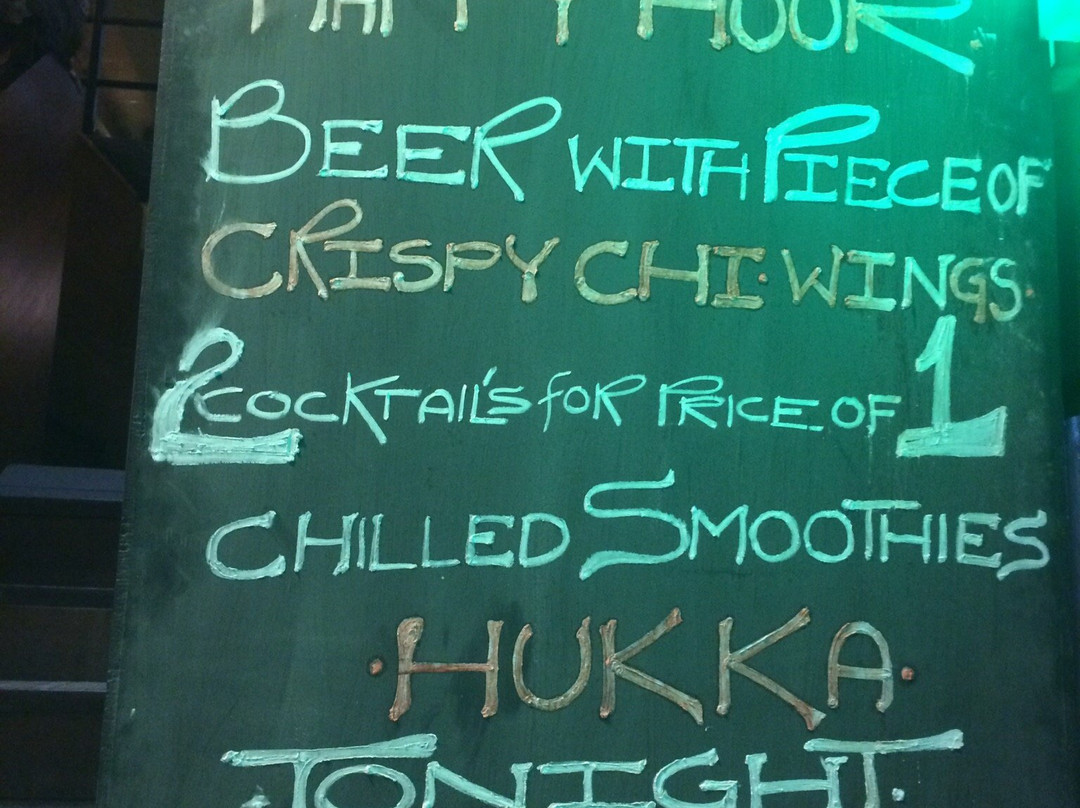 HAPPY HOUR.
BEER WITH PIECE OF
CRISPY CHI. WINGS.
2 COCKTAIL'S FOR PRICE OF 1
CHILLED SMOOTHIES
. HUKKA .
TONIGHT.